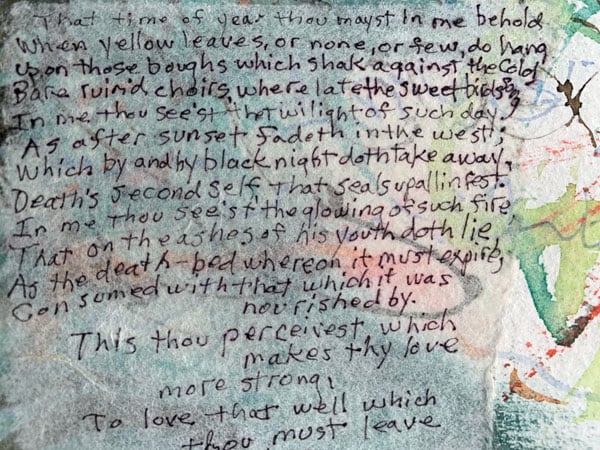 That time of year thou mayst in me behold
When yellow leaves, or none, or few, do hang
upon those boughs which shak against the Cold
Bare ruin'd choirs, where late the sweet birds
In me thou see'st the twilight of such day,
As after sunset fadeth in the west;
Which by and by black night doth take away,
Death's second self, that seals up all in fest.
In me thou see'st the glowing of such fire,
That on the ashes of his youth doth lie
As the death-bed whereon it must expire,
Consumed with that which it was
nourished by.
This thou perceivest which
makes thy love
more strong,
To love that well which
thou must leave